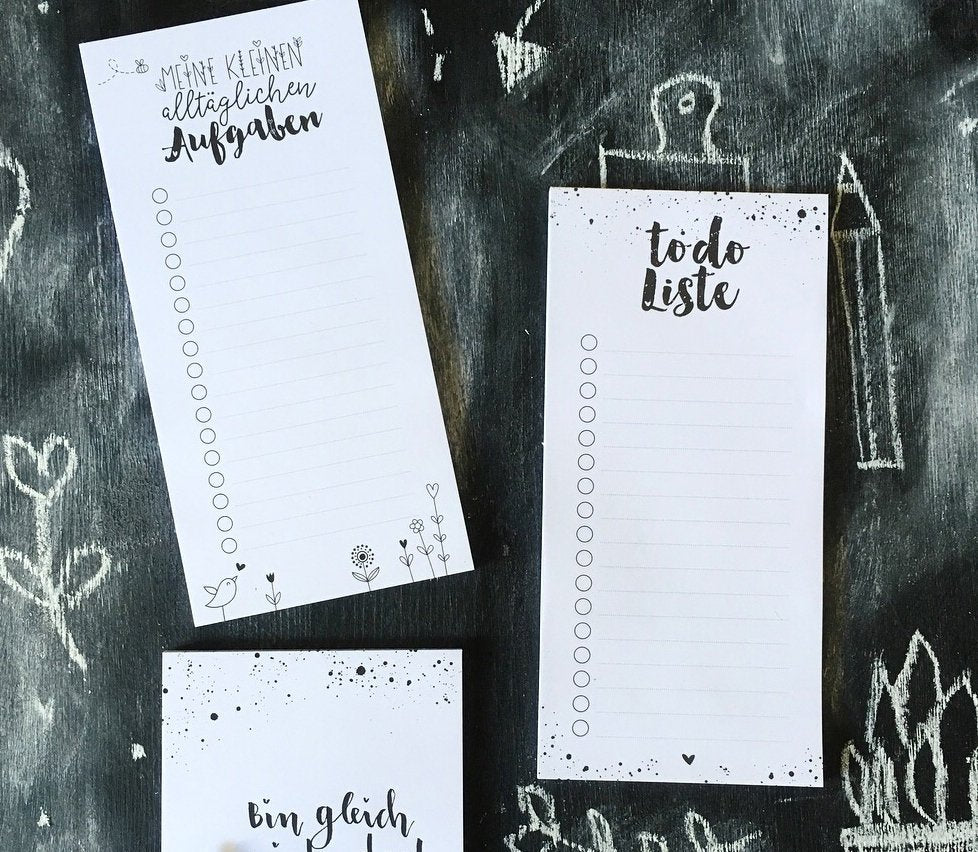 MEINE KLEINEN
alltäglichen
Aufgaben
to do
Liste
Bin gleich